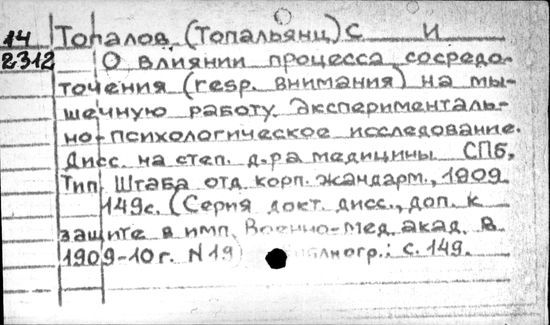 14 Топалов (Топальянц) С И
2312 О влиянии процесса сосредо-
точения (resp. внимания) на мы-
шечную работу. Эксперименталь-
но-психологическое исследование.
Дисс. на степ. д-ра медицины СПб,
Тип. Штаба отд. корп. жандарм., 1909
149с. (Серия докт. дисс., доп. к
защите в имп. Военно-мед. акад. в
1909-10г. N19) : с. 149.